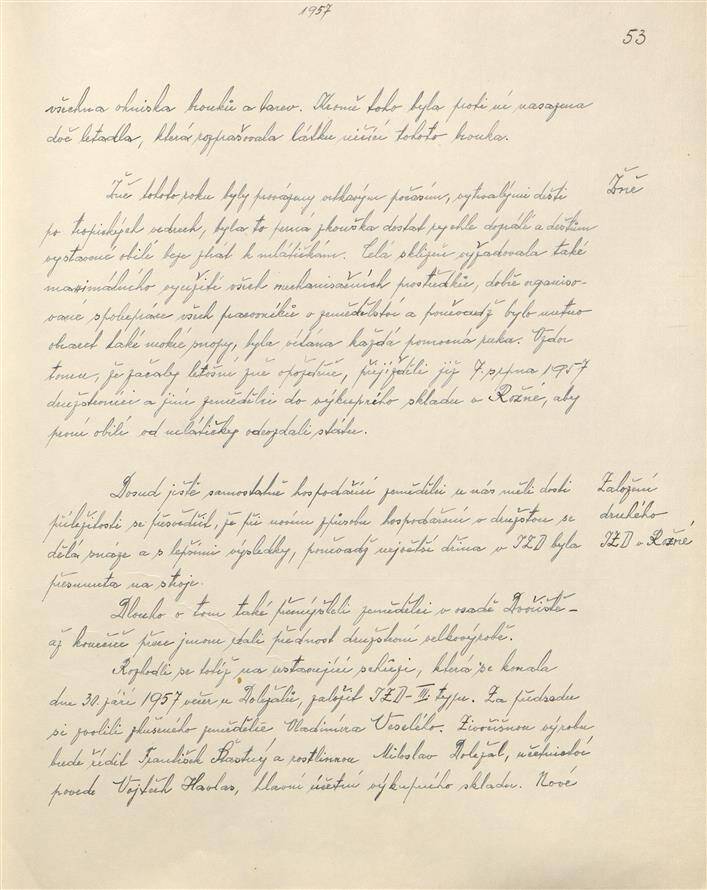 1957
53
všechna ohniska brouků a larev. Kromě toho byla proti ní nasazena
dvě letadla, která rozprašovala látku ničící tohoto brouka.
Žně tohoto roku byly provázeny vrtkavým počasím, vytrvalými dešti
Žně
po tropických vedrech, byla to perná zkouška dostat rychle dozrálí a deštům
vystavené obilí beze ztrát k mlátičkám. Celá sklizeň vyžadovala také
maximálního využití všech mechanisačních prostředků, dobře organiso-
vané spolupráce všech pracovníků v zemědělství a poněvadž bylo nutno
obracet také mokré snopy, byla vítána každá pomocná ruka. Vzdor
tomu, že začaly letošní žně opožděně, přijížděli již 7. srpna 1957
družstevníci a jiní zemědělci do výkupního skladu v Rožné, aby
první obilí od mlátičky odevzdali státu.
Dosud ještě samostatně hospodařící zemědělci u nás měli dosti
Založení
příležitosti se přesvědčit, že při novém způsobu hospodaření v družstvu se
druhého
dělá snáze a s lepšími výsledky, poněvadž největší dřina v JZD byla
JZD v Rožné
přesunuta na stroje.
Dlouho o tom také přemýšleli zemědělci v osadě Dvořiště -
až konečně přece jenom dali přednost družstevní velkovýrobě.
Rozhodli se totiž na ustavující schůzi, která se konala
dne 30. září 1957 večer u Doležalů, založit JZD - III. typu. Za předsedu
si zvolili zkušeného zemědělce Vladimíra Veselého. Živočišnou výrobu
bude řídit František Šťastný a rostlinnou Miloslav Doležal, účetnictví
povede Vojtěch Havlas, hlavní účetní výkupního skladu. Nové